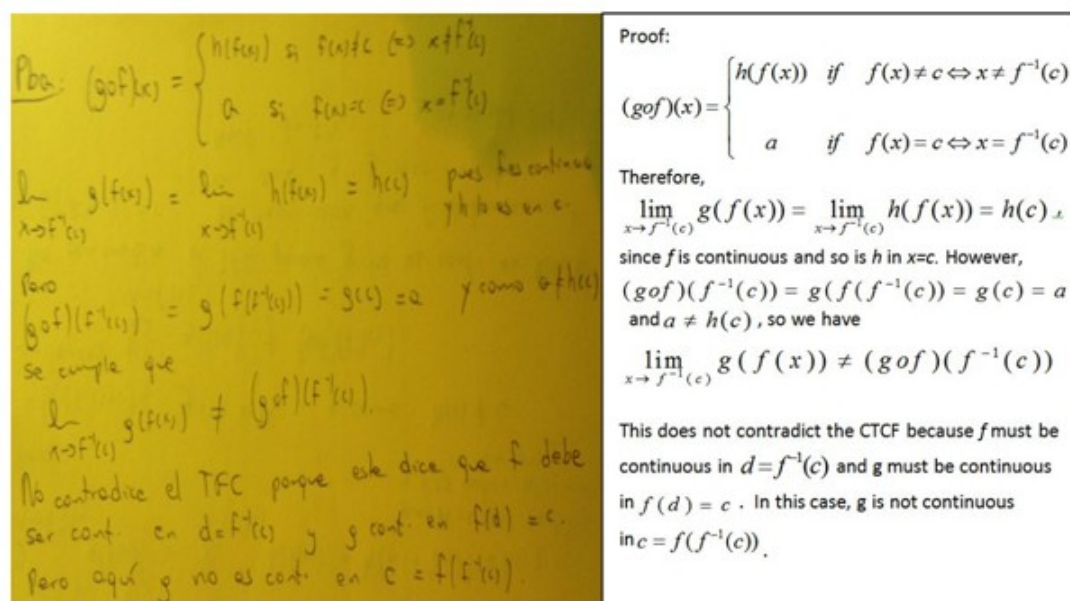 Pba: (gof)(x) = { h(f(x)) si f(x)≠c (=) x≠f⁻¹(c)
a si f(x)=c (=) x=f⁻¹(c)
lim g(f(x)) = lim h(f(x)) = h(c) pues f es continua
x→f⁻¹(c) x→f⁻¹(c) y h lo es en c.
Pero
(gof)(f⁻¹(c)) = g(f(f⁻¹(c))) = g(c) = a y como a≠h(c)
se cumple que
lim g(f(x)) ≠ (gof)(f⁻¹(c)).
x→f⁻¹(c)
No contradice el TFC porque este dice que f debe
ser cont. en d=f⁻¹(c) y g cont. en f(d) = c.
Pero aquí g no es cont. en c = f(f⁻¹(c)).
Proof:
(gof)(x) = { h(f(x)) if f(x) ≠ c ⇔ x ≠ f⁻¹(c)
a if f(x) = c ⇔ x = f⁻¹(c)
Therefore,
lim g(f(x)) = lim h(f(x)) = h(c)
x→f⁻¹(c) x→f⁻¹(c)
since f is continuous and so is h in x=c. However,
(gof)(f⁻¹(c)) = g(f(f⁻¹(c)) = g(c) = a
and a ≠ h(c), so we have
lim g(f(x)) ≠ (gof)(f⁻¹(c))
x→f⁻¹(c)
This does not contradict the CTCF because f must be
continuous in d = f⁻¹(c) and g must be continuous
in f(d) = c. In this case, g is not continuous
in c = f(f⁻¹(c)).